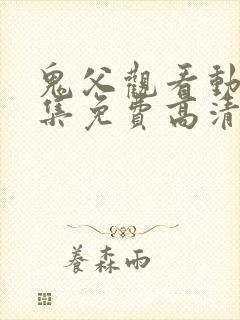 鬼父觀看動
集免費高清
養森雨